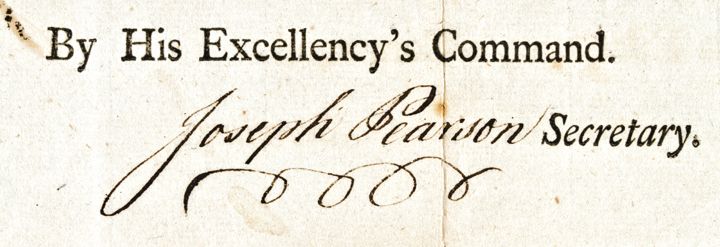 By His Excellency's Command.
Joseph Pearson Secretary.